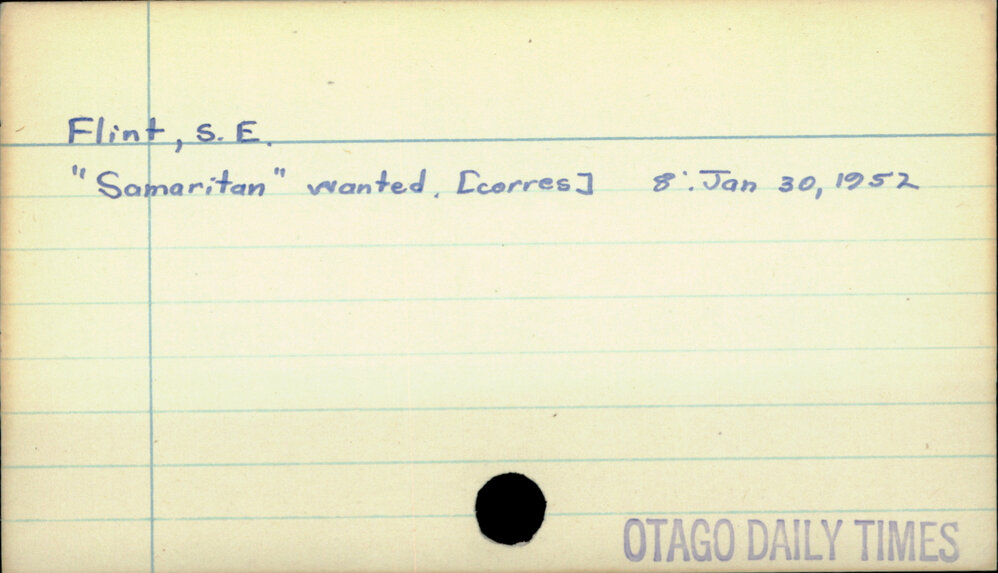 Flint, S. E.
"Samaritan" wanted. [corres] 8: Jan 30, 1952
OTAGO DAILY TIMES